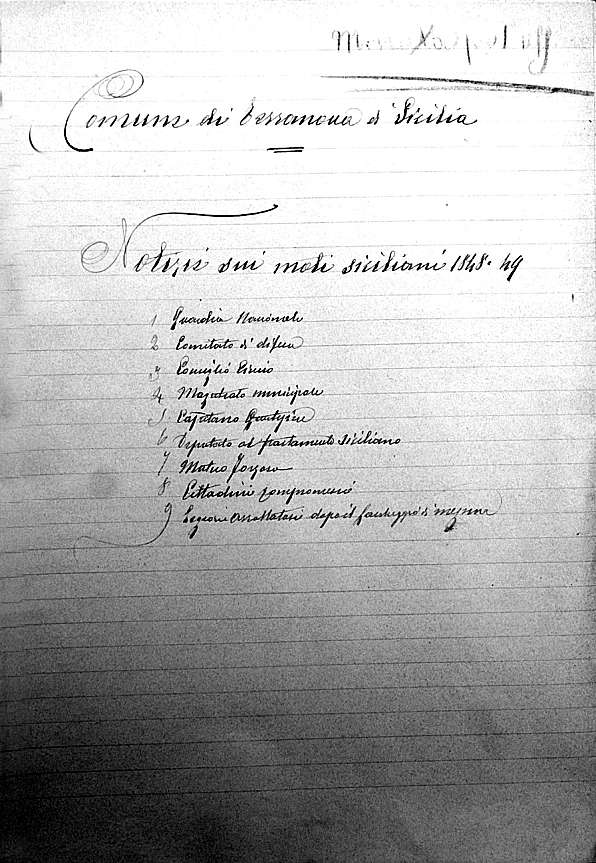 Comune di Terranova di Sicilia
Notizie sui moti siciliani 1848-49
1 Guardia Nazionale
2 Comitato di difesa
3 Consiglio Civico
4 Magistrato municipale
5 Capitano
6 Deputato al parlamento siciliano
7 Mutuo forzoso
8 Cittadini compromessi
9 dopo il di